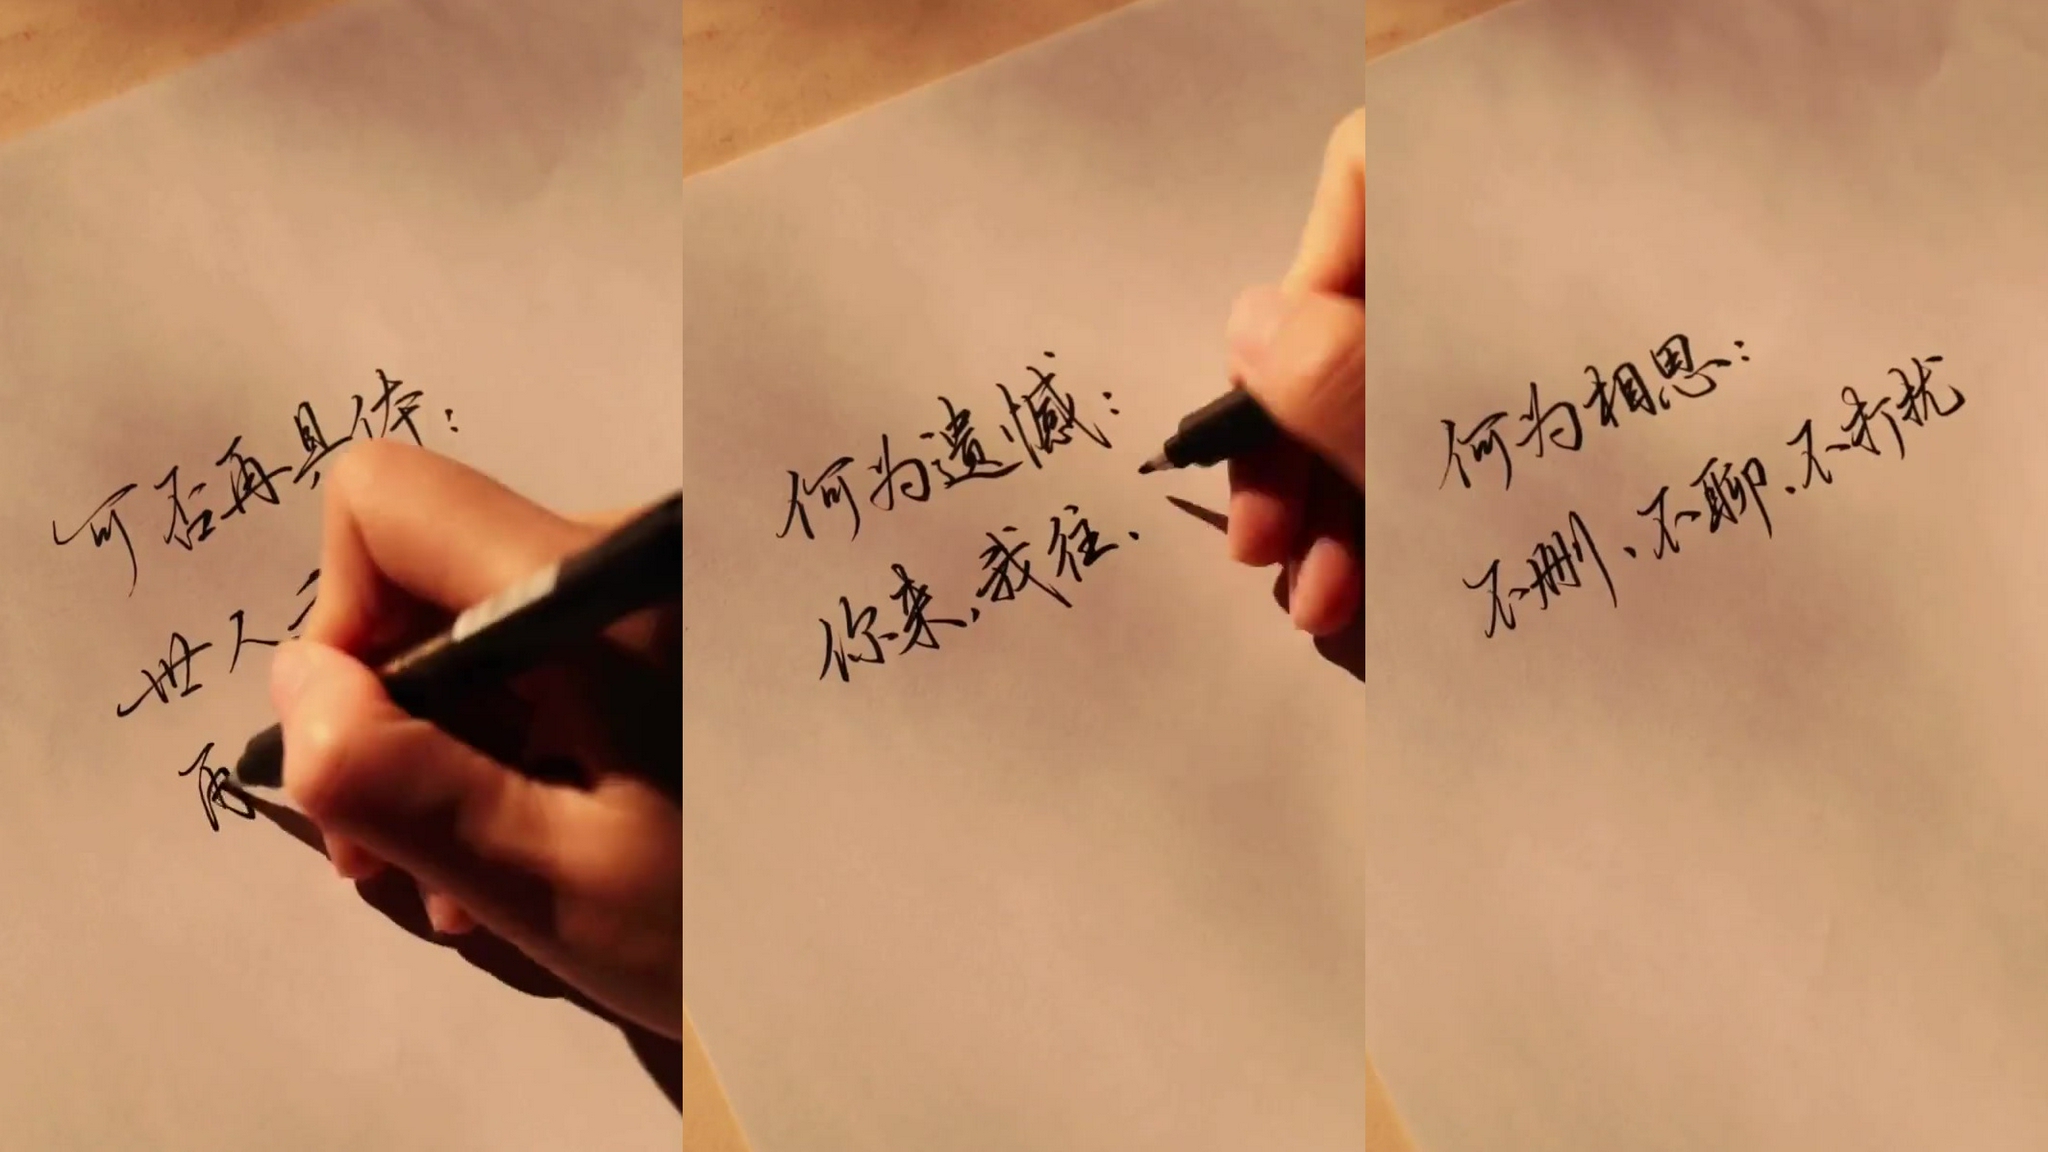 可否再具体:
世人三
再
何为遗憾:
你来、我往、
何为相思:
不删、不聊、不打扰